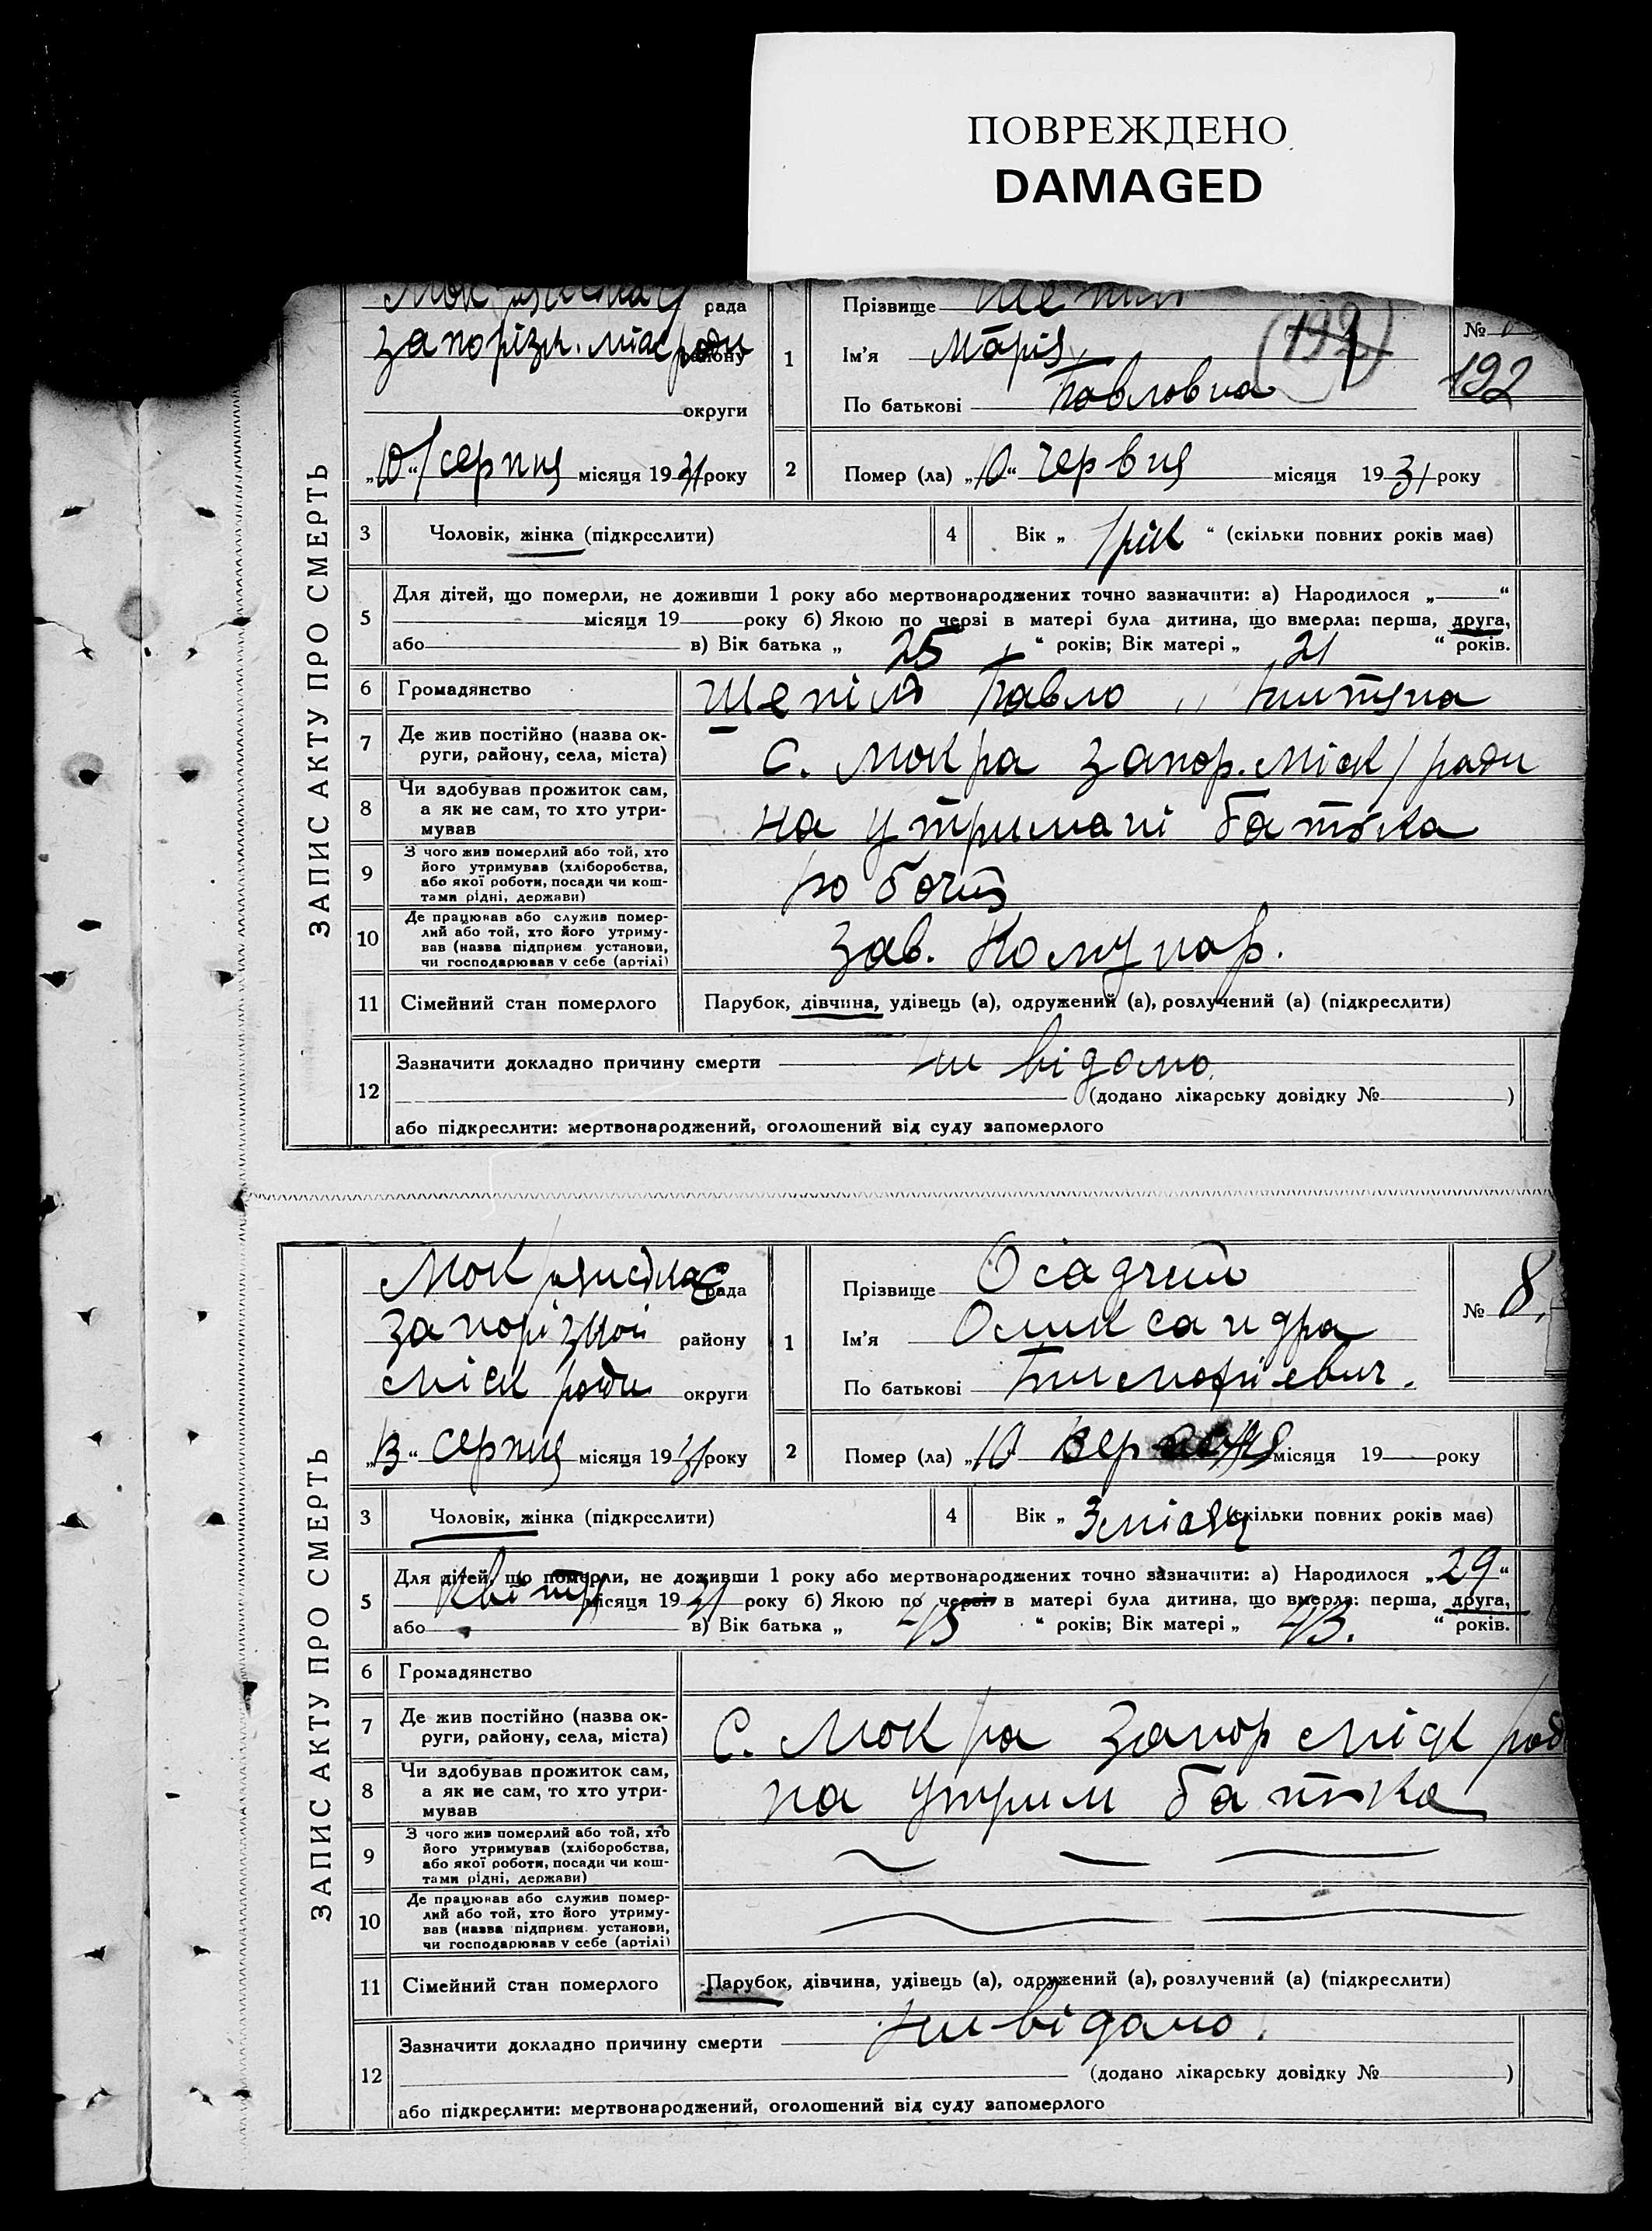 ПОВРЕЖДЕНО
DAMAGED
рада
Прізвище
№
запорізк. міськради району
1
Ім'я Марія
192
По батькові Павловна
округи
„10“ серпня місяця 1931 року
2
Помер (ла) „10“ червня місяця 1931 року
3 Чоловік, жінка (підкреслити)
4 Вік „ 1 рік “ (скільки повних років має)
ЗАПИС АКТУ ПРО СМЕРТЬ
5
Для дітей, що померли, не доживши 1 року або мертвонароджених точно зазначити: а) Народилося „ “
місяця 19 року б) Якою по черзі в матері була дитина, що вмерла: перша, друга,
або в) Вік батька „ 25 “ років; Вік матері „ 21 “ років.
6 Громадянство
Павло
7 Де жив постійно (назва округи, району, села, міста)
с. Мокра Запор. міськ/ради
8 Чи здобував прожиток сам, а як не сам, то хто утримував
на утримані батька
9 З чого жив померлий або той, хто його утримував (хліборобства, або якої роботи, посади чи коштами рідні, держави)
робочий
10 Де працював або служив померлий або той, хто його утримував (назва підприєм. установи, чи господарював у себе (артілі)
зав. Комунар.
11 Сімейний стан померлого
Парубок, дівчина, удівець (а), одружений (а), розлучений (а) (підкреслити)
12
Зазначити докладно причину смерти не відомо.
(додано лікарську довідку № )
або підкреслити: мертвонароджений, оголошений від суду запомерлого
Мокрянська рада
Прізвище Осадчий
№ 8.
запорізкой району
1
Ім'я Олександра
міськ ради округи
По батькові Тимофіевич.
„13“ серпня місяця 1931 року
2
Помер (ла) „10 місяця 19 року
3 Чоловік, жінка (підкреслити)
4 Вік „ 3 місяц (скільки повних років має)
ЗАПИС АКТУ ПРО СМЕРТЬ
5
Для дітей, що померли, не доживши 1 року або мертвонароджених точно зазначити: а) Народилося „29“
квітня місяця 1931 року б) Якою по черзі в матері була дитина, що вмерла: перша, друга,
або в) Вік батька „ 45 “ років; Вік матері „ 43. “ років.
6 Громадянство
7 Де жив постійно (назва округи, району, села, міста)
с. Мокра Запор міськ рад
8 Чи здобував прожиток сам, а як не сам, то хто утримував
на утрим батька
9 З чого жив померлий або той, хто його утримував (хліборобства, або якої роботи, посади чи коштами рідні, держави)
10 Де працював або служив померлий або той, хто його утримував (назва підприєм. установи, чи господарював у себе (артілі)
11 Сімейний стан померлого
Парубок, дівчина, удівець (а), одружений (а), розлучений (а) (підкреслити)
12
Зазначити докладно причину смерти не відомо.
(додано лікарську довідку № )
або підкреслити: мертвонароджений, оголошений від суду запомерлого